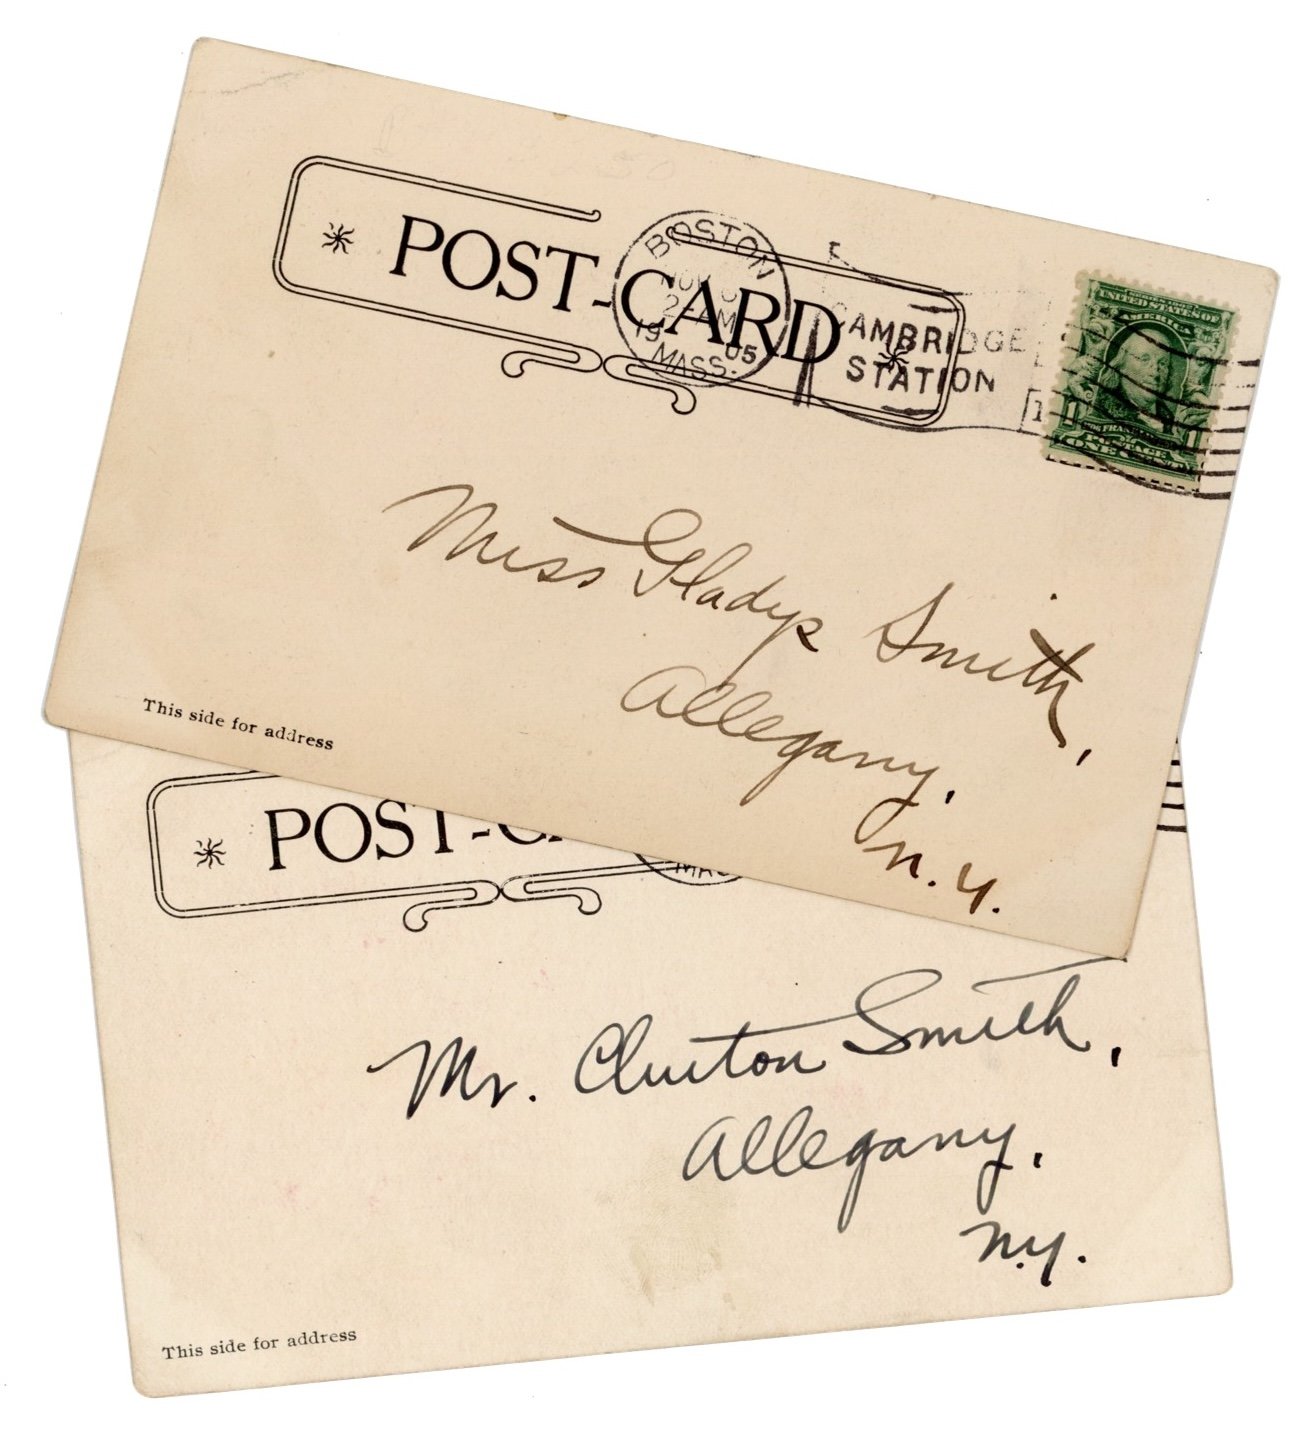 POST-CARD
BOSTON
19 05
MASS.
CAMBRIDGE
STATION
UNITED STATES OF
AMERICA
POSTAGE
ONE CENT
Miss Gladys Smith,
Allegany,
N. Y.
This side for address
POST-CA
Mr. Clinton Smith,
Allegany,
N.Y.
This side for address